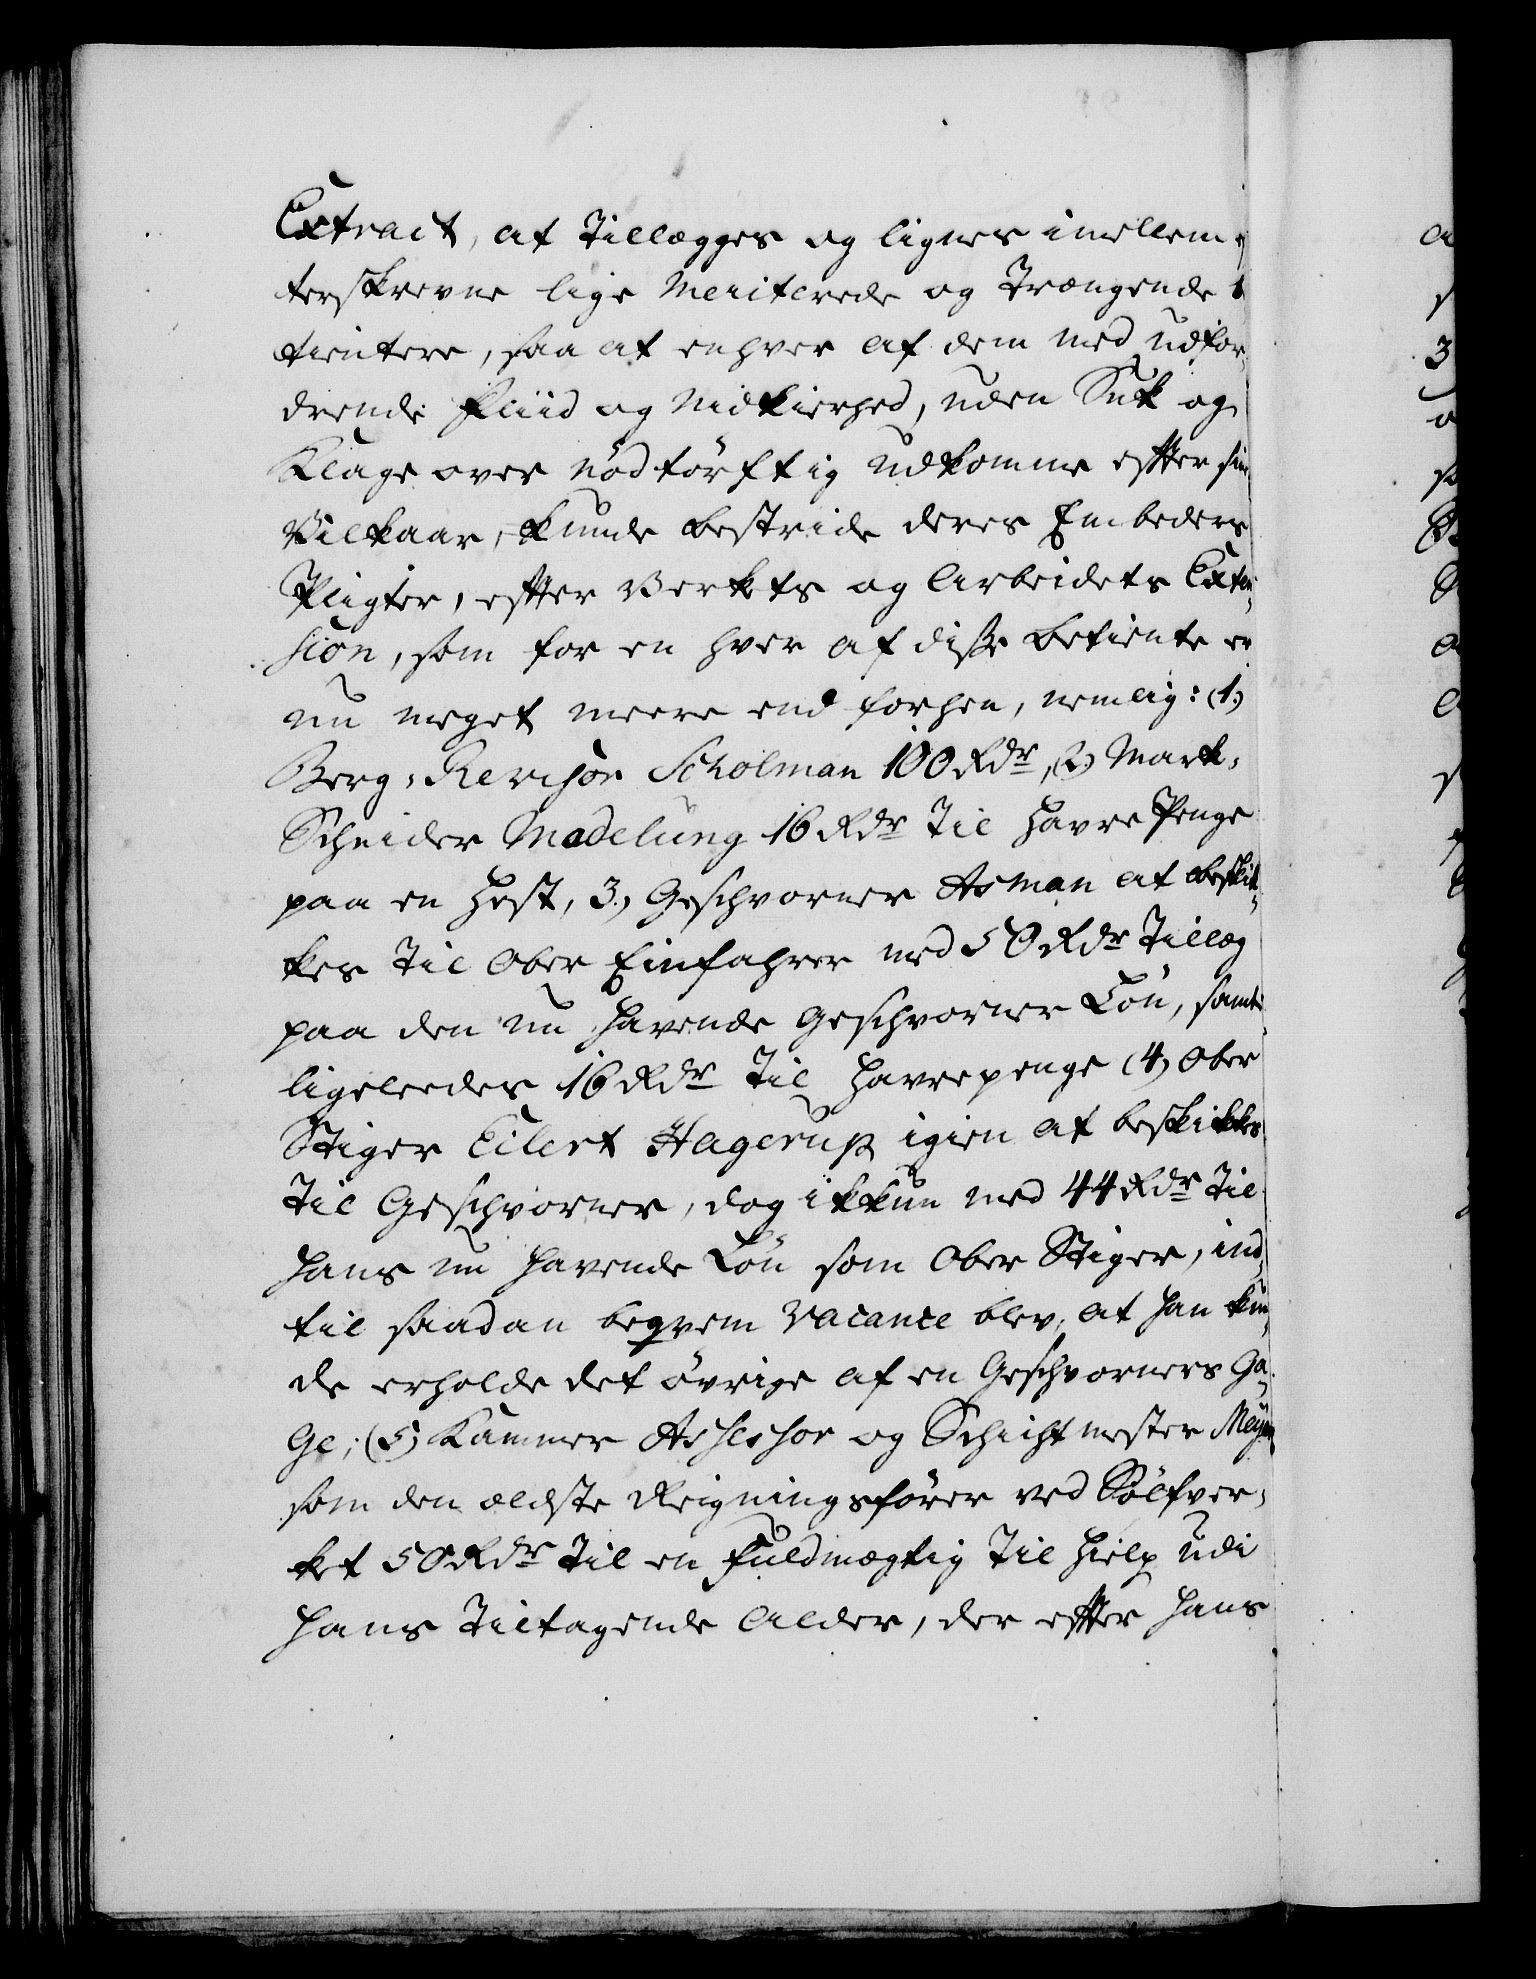 Extract, at Tillægges og lignes imellem
terskrevne lige Meriterede og Trængende
tientere, saa at enhver af dem med udfor¬
drende Fliid og Nidkierhed, uden Suk og
Klage over nödtörftig udkomme efter sin
Vilkaar, kunde bestride deres Embeders
Pligter, efter Verkets og Arbeidets Exten¬
sion, som for en hver af disse betiente er
nu meget meere end forhen, nemlig: (1.)
Berg-Revisor Scholman 100 Rdr, (2.) Mark-
Scheider Madelung 16 Rdr Til Havre Penge
paa en Hest, 3.) Geschvorner Asman at beskik¬
kes Til Ober Einfahrer med 50 Rdr Tillæg
paa den nu havende Geschvorner Lön, samt
ligeleedes 16 Rdr Til Havrepenge (4) Ober
Stiger Eilert Hagerup igien at beskikkes
Til Geschvorner, dog ikkun med 44 Rdr Til
hans nu havende Lön som Ober Stiger, ind¬
til saadan beqvem Vacance blev, at han kun¬
de erholde det övrige af en Geschvorners Ga¬
ge; (5) Kammer Assessor og Schichtmester Meyer
som den ældste Reigningsförer ved Sölfver¬
ket 50 Rdr Til en Fuldmægtig Til Hielp udi
hans Tiltagende Alder, der efter hans